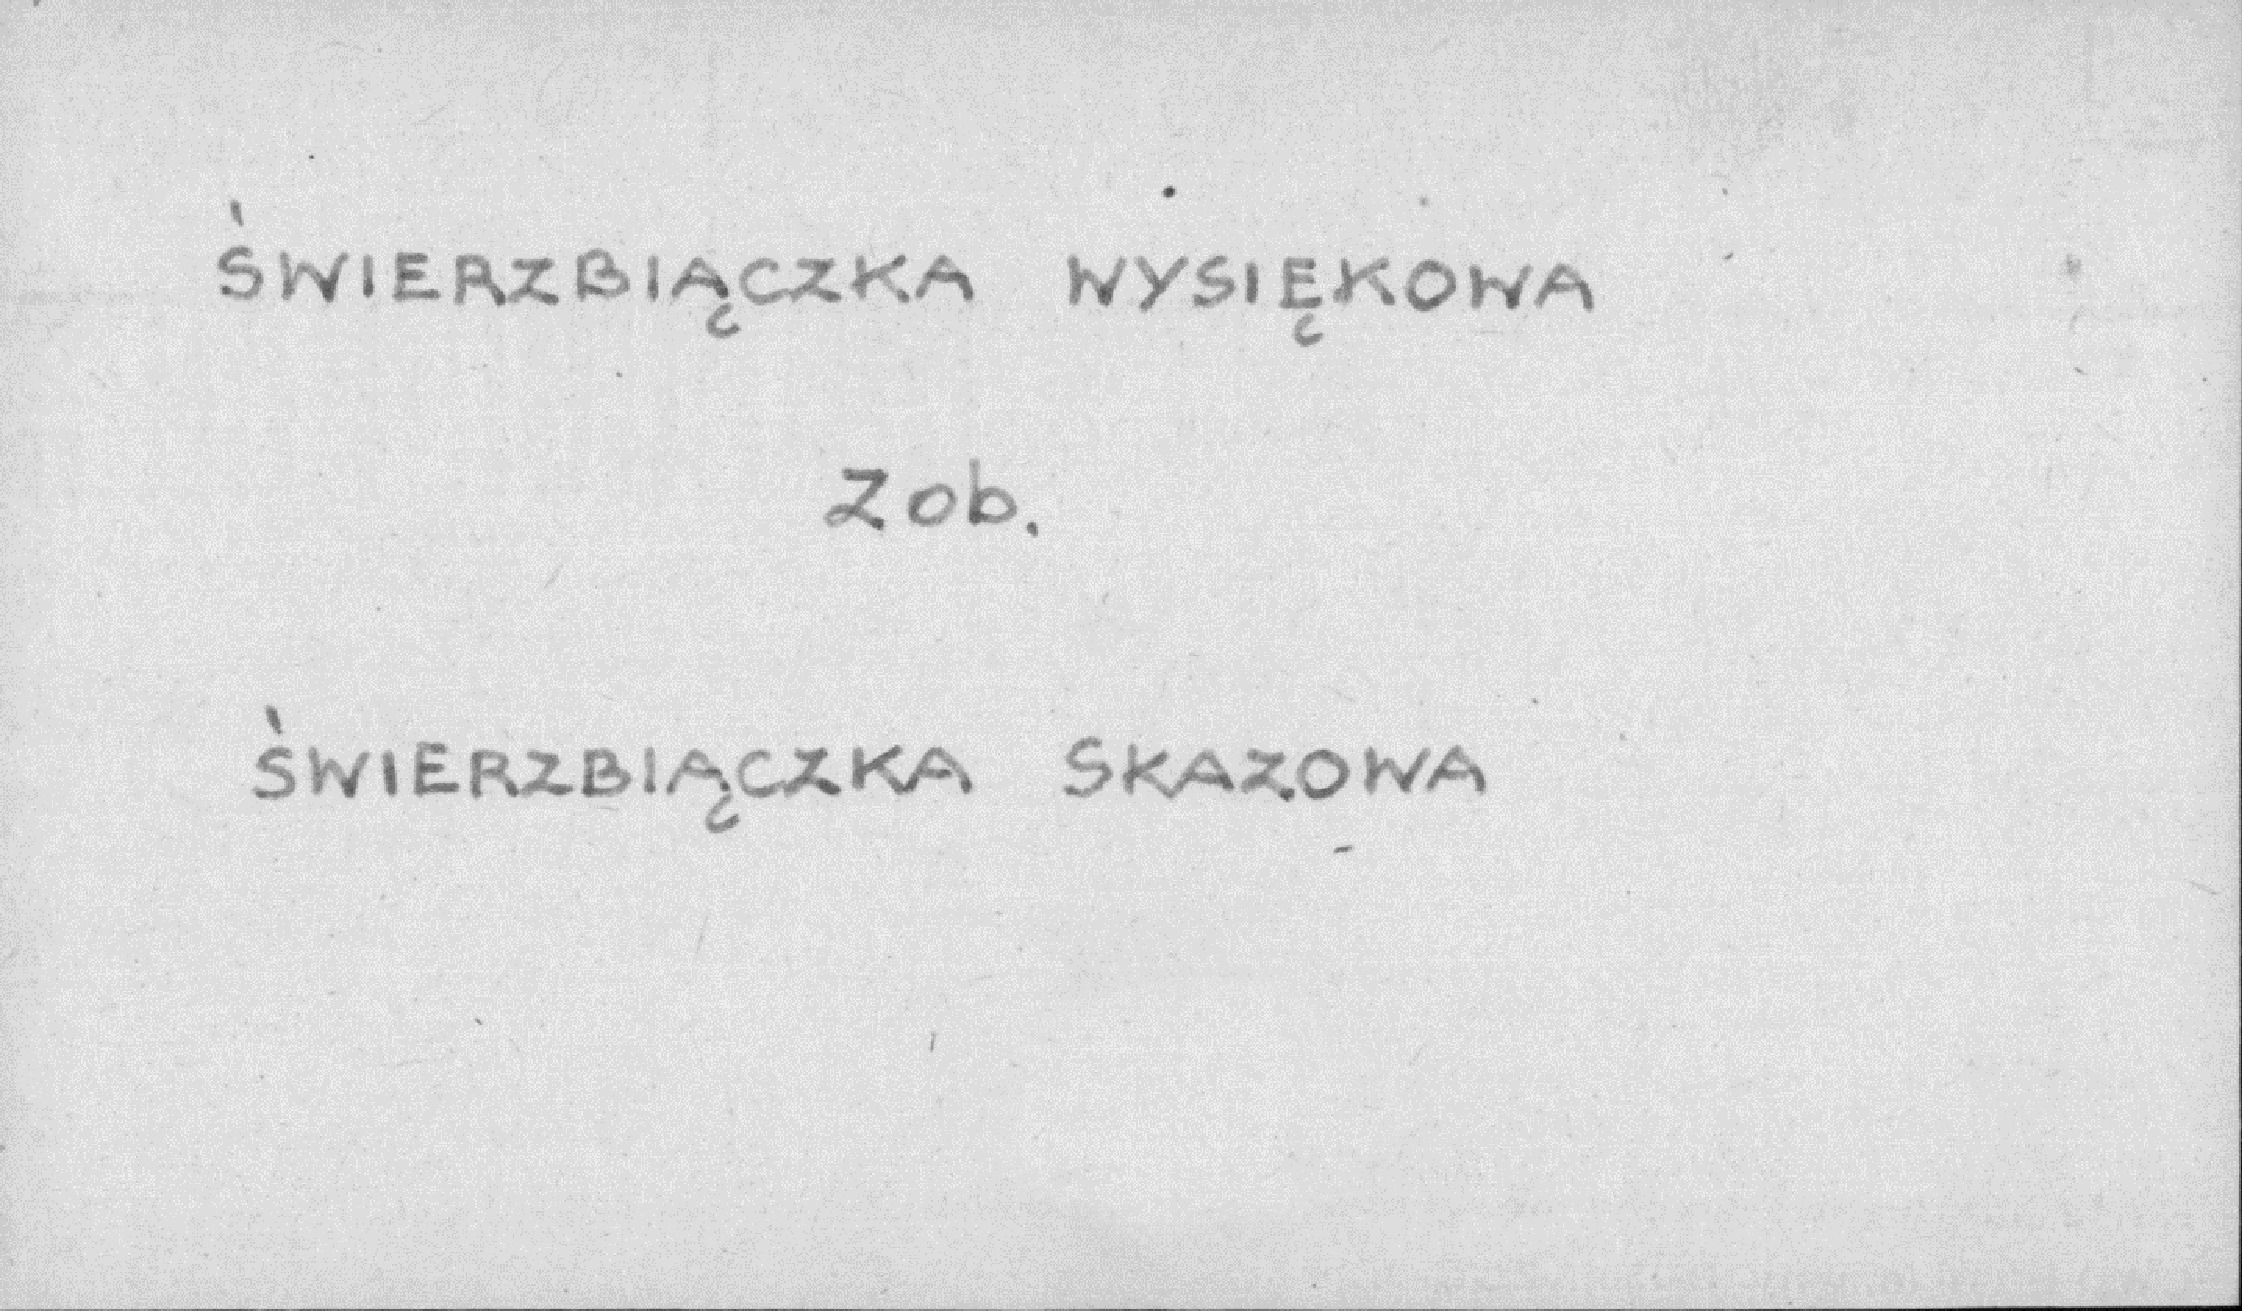 ŚWIERZBIĄCZKA WYSIĘKOWA
Zob.
ŚWIERZBIĄCZKA SKAZOWA